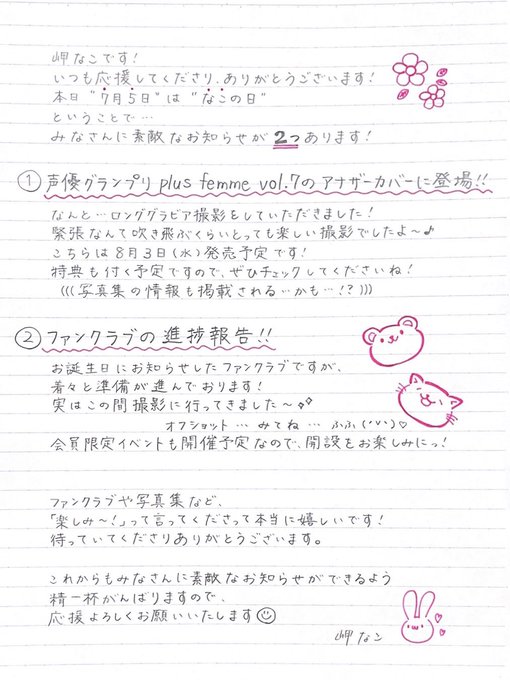 岬なこです!
いつも応援してくださり、ありがとうございます!
本日 "7月5日" は "なこの日"
ということで…
みなさんに素敵なお知らせが 2つ あります!
① 声優グランプリ plus femme vol.7の アナザーカバーに登場!!
なんと… ロンググラビア撮影をしていただきました!
緊張なんて吹き飛ぶくらいとっても楽しい撮影でしたよ〜♪
こちらは 8月3日(水)発売予定です!
特典も付く予定ですので、ぜひチェックしてくださいね!
(((写真集の情報も掲載される…かも…!?)))
② ファンクラブの進捗報告!!
お誕生日にお知らせしたファンクラブですが、
着々と準備が進んでおります!
実はこの間撮影に行ってきました〜
オフショット … みてね … ふふ(˘ᵕ˘)♡
会員限定イベントも開催予定なので、開設をお楽しみにっ!
ファンクラブや写真集など、
「楽しみ〜!」って言ってくださって本当に嬉しいです!
待っていてくださりありがとうございます。
これからもみなさんに素敵なお知らせができるよう
精一杯がんばりますので、
応援よろしくお願いいたします☺
岬なこ